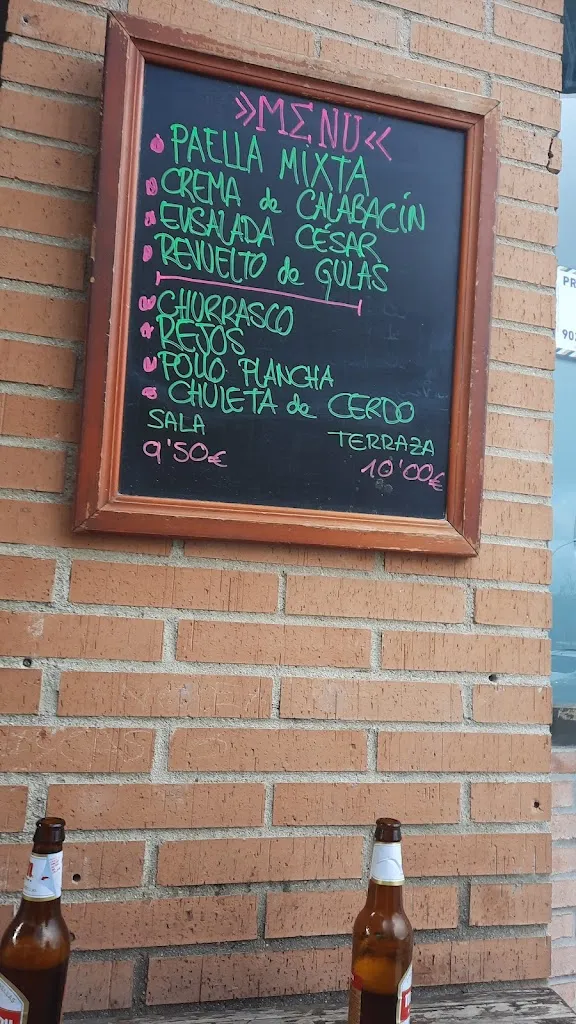 »MENU«
PAELLA MIXTA
CREMA de CALABACÍN
ENSALADA CÉSAR
REVUELTO de GULAS
CHURRASCO
REJOS
POLLO PLANCHA
CHULETA de CERDO
SALA TERRAZA
9'50€ 10'00€
PR
90